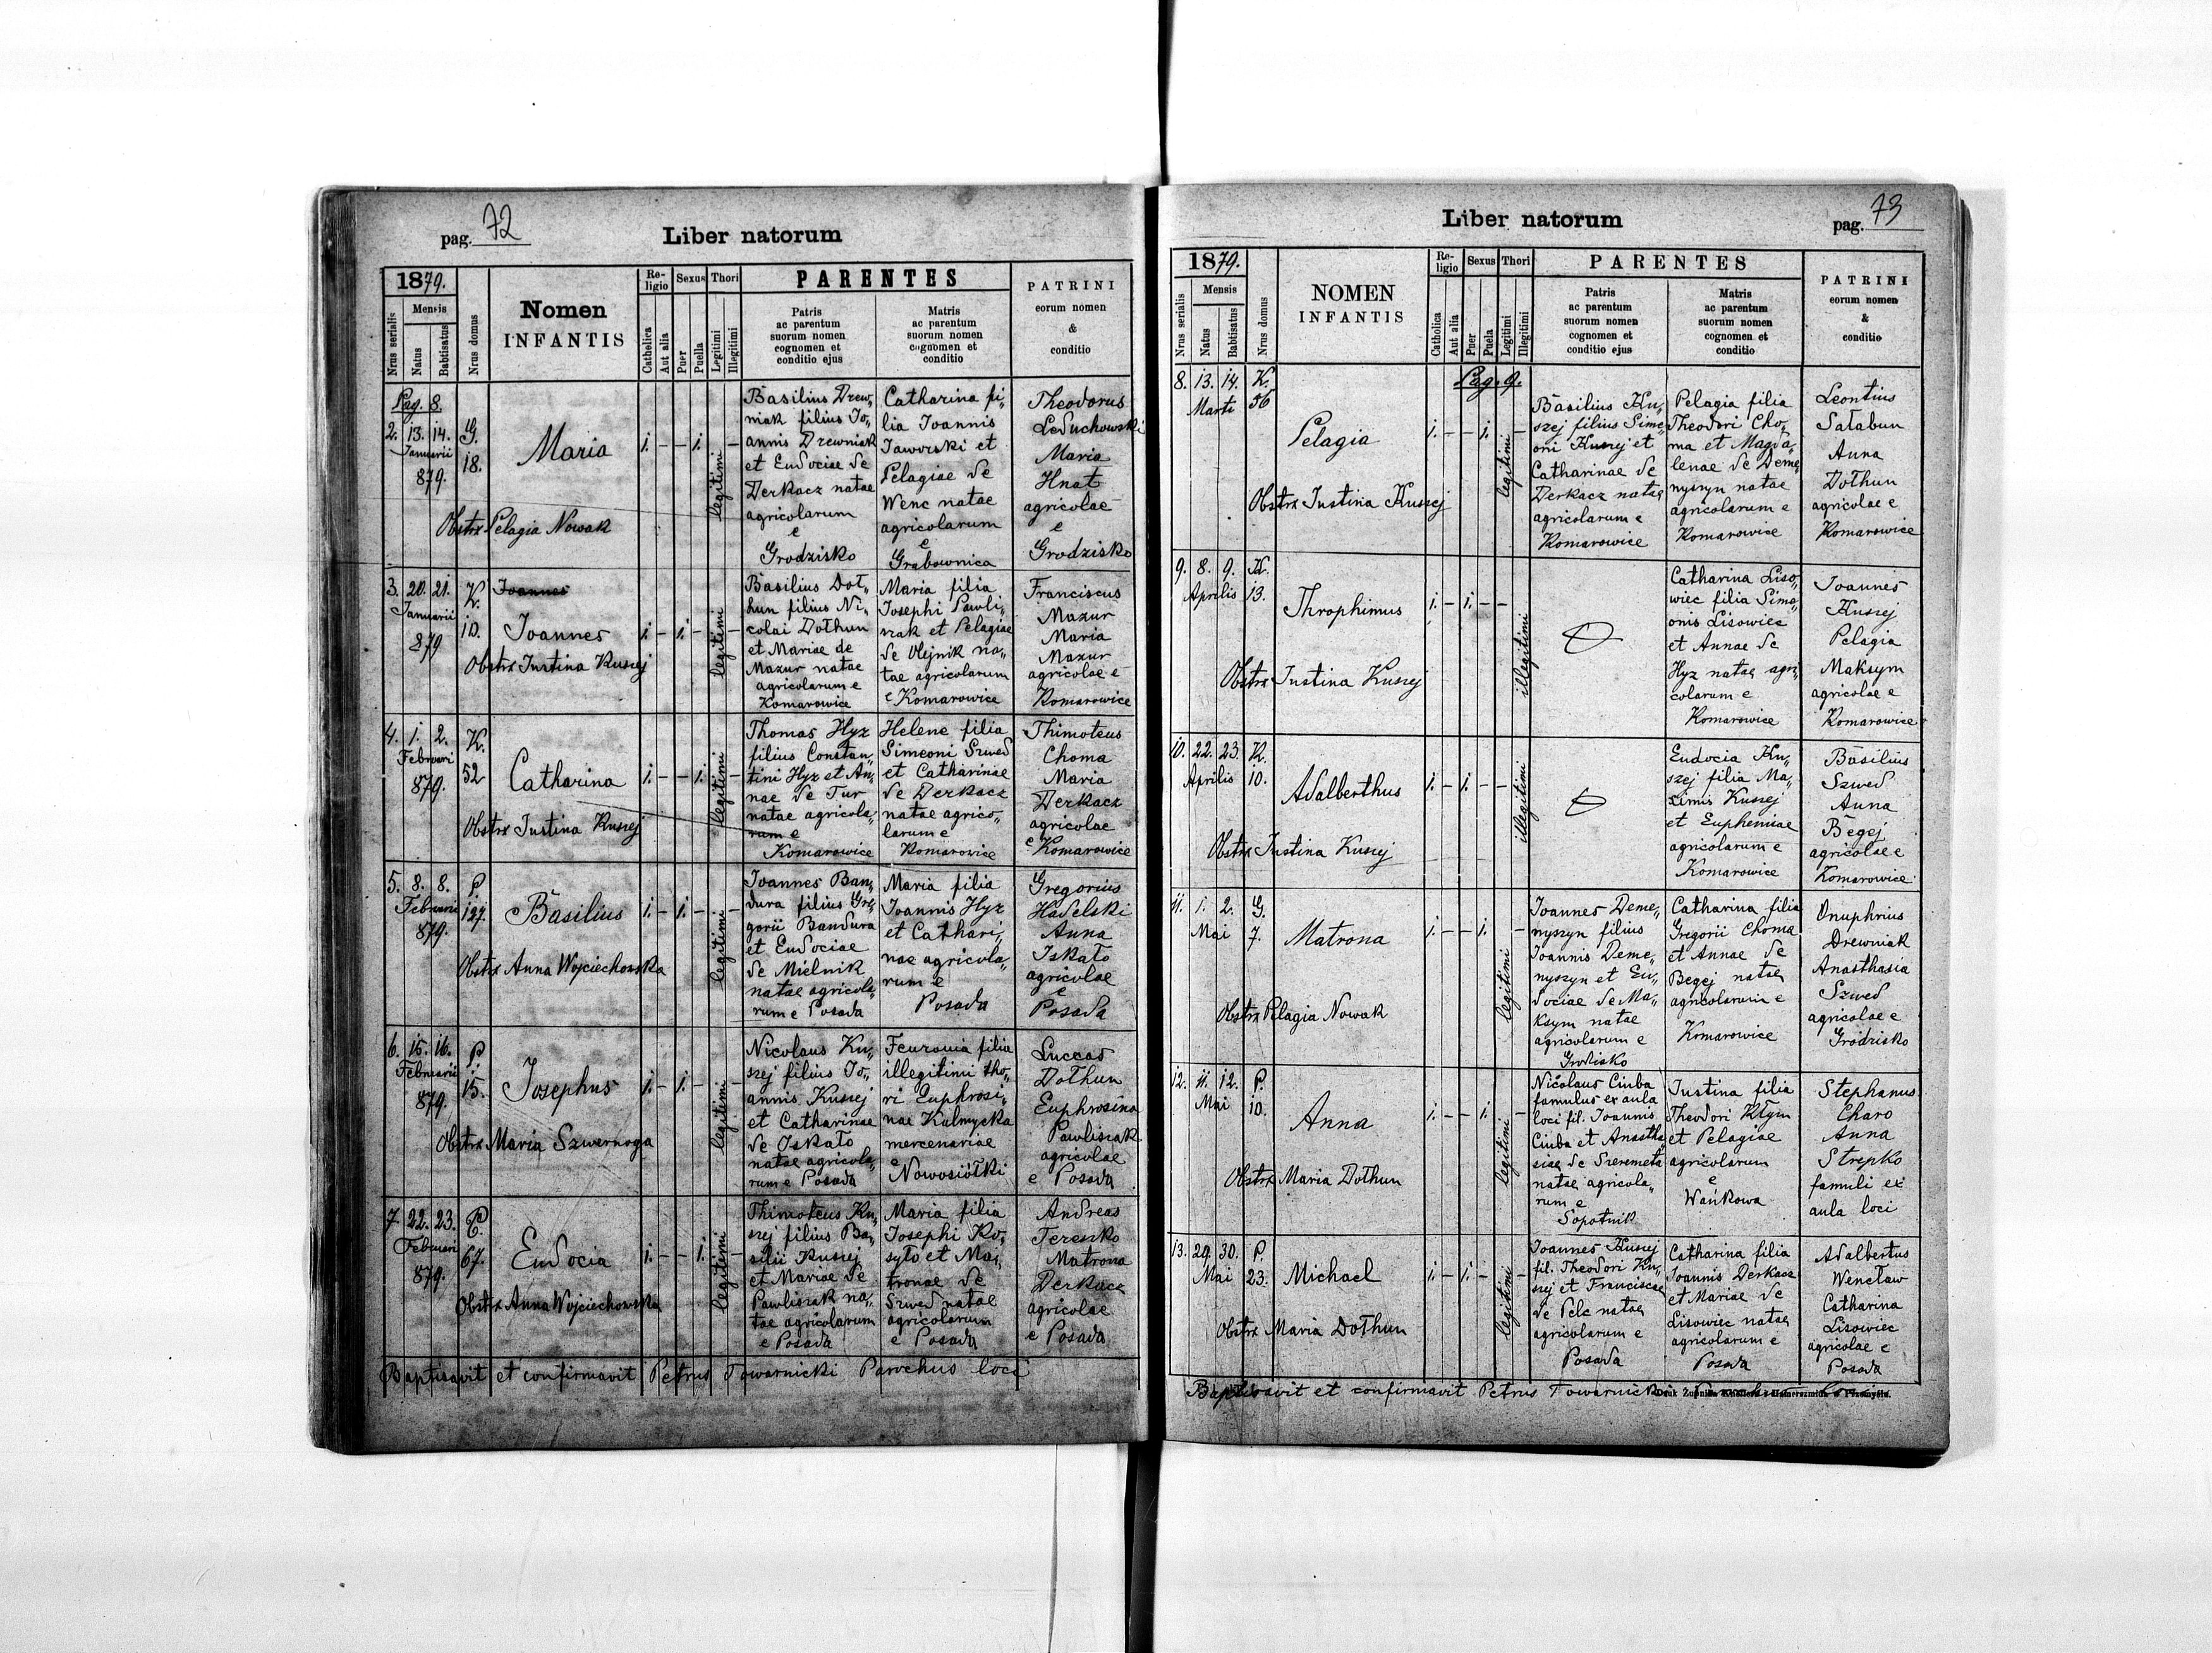 pag. 72
Liber natorum
1879.
Mensis
Nrus serialis
Natus
Babtisatus
Nrus domus
Nomen
INFANTIS
Religio
Catholica
Aut alia
Sexus
Puer
Puella
Thori
Legitimi
Illegitimi
PARENTES
Patris
ac parentum
suorum nomen
cognomen et
conditio ejus
Matris
ac parentum
suorum nomen
cognomen et
conditio
PATRINI
eorum nomen
&
conditio
Pag. 8.
2. 13. 14. G.
Januarii 18.
879.
Maria
1. – – 1. –
legitimi
Obstrx Pelagia Nowak
Basilius Drew„
niak filius Jo„
annis Drewniak
et Eudociae de
Derkacz natae
agricolarum
e
Grodzisko
Catharina fi„
lia Joannis
Jaworski et
Pelagiae de
Wenc natae
agricolarum
e
Grabownica
Theodorus
Leduchowski
Maria
Hnat
agricolae
e
Grodzisko
3. 20. 21. K.
Januarii 10.
879
Joannes
Joannes
1. – 1. – –
legitimi
Obstrx Justina Kuszej
Basilius Dot„
hun filius Ni„
colai Dothun
et Mariae de
Mazur natae
agricolarum e
Komarowice
Maria filia
Josephi Pawli„
szak et Pelagiae
de Olejnik na„
tae agricolarum
e Komarowice
Franciscus
Mazur
Maria
Mazur
agricolae e
Komarowice
4. 1. 2. K.
Februari 52
879.
Catharina
1. – – 1. –
legitimi
Obstrx Justina Kuszej
Thomas Hyz
filius Constan„
tini Hyz et An„
nae de Tur
natae agricola„
rum e
Komarowice
Helene filia
Simeoni Szwed
et Catharinae
de Derkacz
natae agrico„
larum e
Komarowice
Thimoteus
Choma
Maria
Derkacz
agricolae
e Komarowice
5. 8. 8. P.
Februarii 127.
879.
Basilius
1. – 1. – –
legitimi
Obstrx Anna Wojciechowska
Joannes Ban„
dura filius Gre„
gorii Bandura
et Eudociae
de Mielnik
natae agricola„
rum e Posada
Maria filia
Joannis Hyz
et Cathari„
nae agricola„
rum e
Posada
Gregorius
Hadelski
Anna
Iskało
agricolae
e
Posada
6. 15. 16. P.
Februarii 15.
879.
Josephus
1. – 1. – –
legitimi
Obstrx Maria Szwernoga
Nicolaus Ku„
szej filius Jo„
annis Kuszej
et Catharinae
de Iskało
natae agricola„
rum e Posada
Feuronia filia
illegitimi tho„
ri Euphrosi„
nae Kalmycka
mercenariae
e
Nowosiółki
Luccas
Dothun
Euphrosina
Pawliszak
agricolae
e Posada
7 22. 23. P.
Februari 67.
879.
Eudocia
1. – – 1. –
legitimi
Obstrx Anna Wojciechowska
Thimoteus Ku„
szej filius Ba„
silii Kuszej
et Mariae de
Pawliszak na„
tae agricolarum
e Posada
Maria filia
Josephi Ko„
syło et Ma„
tronae de
Szwed natae
agricolarum
e Posada
Andreas
Tereszko
Matrona
Derkacz
agricolae
e Posada
Baptisavit et confirmavit Petrus Towarnicki Parochus loci
Liber natorum
pag. 73
1879.
Mensis
Nrus serialis
Natus
Babtisatus
Nrus domus
NOMEN
INFANTIS
Religio
Catholica
Aut alia
Sexus
Puer
Puela
Thori
Legitimi
Illegitimi
PARENTES
Patris
ac parentum
suorum nomen
cognomen et
conditio ejus
Matris
ac parentum
suorum nomen
cognomen et
conditio
PATRINI
eorum nomen
&
conditio
Pag. 9.
8. 13. 14. K.
Marti 56
Pelagia
1. – – 1. –
legitimi
Obstrx Justina Kuszej
Basilius Ku„
szej filius Sime„
oni Kuszej et
Catharinae de
Derkacz natae
agricolarum e
Komarowice
Pelagia filia
Theodori Cho„
ma et Magda„
lenae de Deme„
nyszyn natae
agricolarum e
Komarowice
Leontius
Sałabun
Anna
Dothun
agricolae e
Komarowice
9. 8. 9. K.
Aprilis 13.
Throphimus
1. – 1. – –
illegitimi
Obstrx Justina Kuszej
Catharina Liso„
wiec filia Sime„
onis Lisowiec
et Annae de
Hyz natae agri„
colarum e
Komarowice
Joannes
Kuszej
Pelagia
Maksym
agricolae e
Komarowice
10. 22. 23. K.
Aprilis 10.
Adalberthus
1. – 1. – –
illegitimi
Obstrx Justina Kuszej
Eudocia Ku„
szej filia Ma„
ximis Kuszej
et Euphemiae
agricolarum e
Komarowice
Basilius
Szwed
Anna
Begej
agricolae e
Komarowice
11. 1. 2. G.
Mai 7.
Matrona
1. – – 1. –
legitimi
Obstrx Pelagia Nowak
Joannes Deme„
nyszyn filius
Joannis Deme„
nyszyn et Eu„
dociae de Ma„
ksym natae
agricolarum e
Grodzisko
Catharina filia
Gregorii Choma
et Annae de
Begej natae
agricolarum e
Komarowice
Onuphrius
Drewniak
Anasthasia
Szwed
agricolae e
Grodzisko
12. 11. 12. P.
Mai 10.
Anna
1. – – 1. –
legitimi
Obstrx Maria Dothun
Nicolaus Ciuba
famulus ex aula
loci fil. Joannis
Ciuba et Anastha„
siae de Szeremeta
natae agricola„
rum e
Sopotnik
Justina filia
Theodori Kłym
et Pelagiae
agricolarum
e
Wańkowa
Stephanus
Charo
Anna
Strepko
famuli ex
aula loci
13. 29. 30. P.
Mai 23.
Michael
1. – 1. – –
legitimi
Obstrx Maria Dothun
Joannes Kuszej
fil. Theodori Ku„
szej et Franciscae
de Pelc natae
agricolarum e
Posada
Catharina filia
Joannis Derkacz
et Mariae de
Lisowiec natae
agricolarum e
Posada
Adalbertus
Wencław
Catharina
Lisowiec
agricolae e
Posada
Baptisavit et confirmavit Petrus Towarnicki